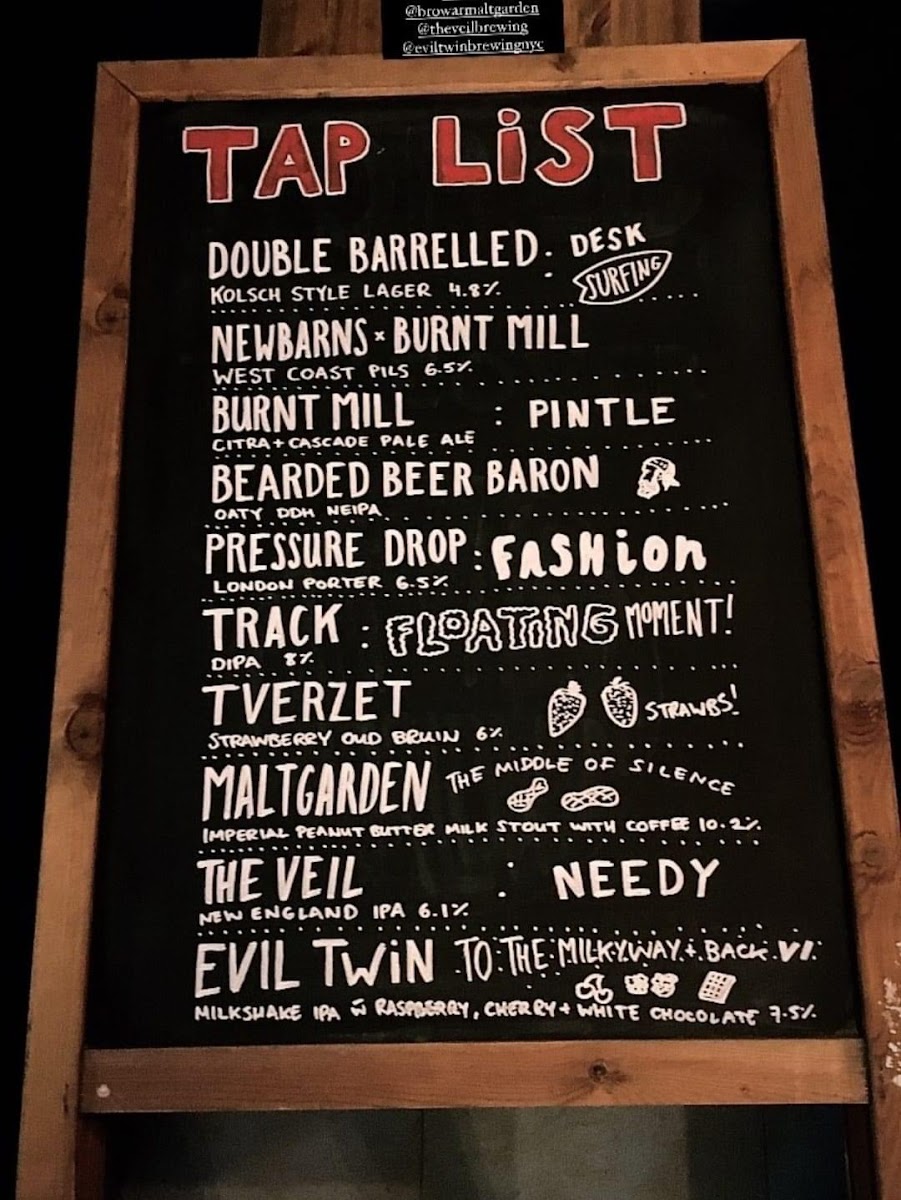 @browarmaltgarden
@theveilbrewing
@eviltwinbrewingnyc
TAP LiST
DOUBLE BARRELLED : DESK
SURFING
KOLSCH STYLE LAGER 4.8%
NEWBARNS x BURNT MILL
WEST COAST PILS 6.5%
BURNT MILL : PINTLE
CITRA + CASCADE PALE ALE
BEARDED BEER BARON
OATY DDH NEIPA
PRESSURE DROP : FASHion
LONDON PORTER 6.5%
TRACK : FLOATING MOMENT!
DIPA 8%
TVERZET STRAWBS!
STRAWBERRY OUD BRUIN 6%
MALTGARDEN THE MIDDLE OF SILENCE
IMPERIAL PEANUT BUTTER MILK STOUT WITH COFFEE 10.2%
THE VEIL : NEEDY
NEW ENGLAND IPA 6.1%
EVIL TWiN TO THE MILKYWAY + BACK VI
MILKSHAKE IPA w RASPBERRY, CHERRY + WHITE CHOCOLATE 7.5%